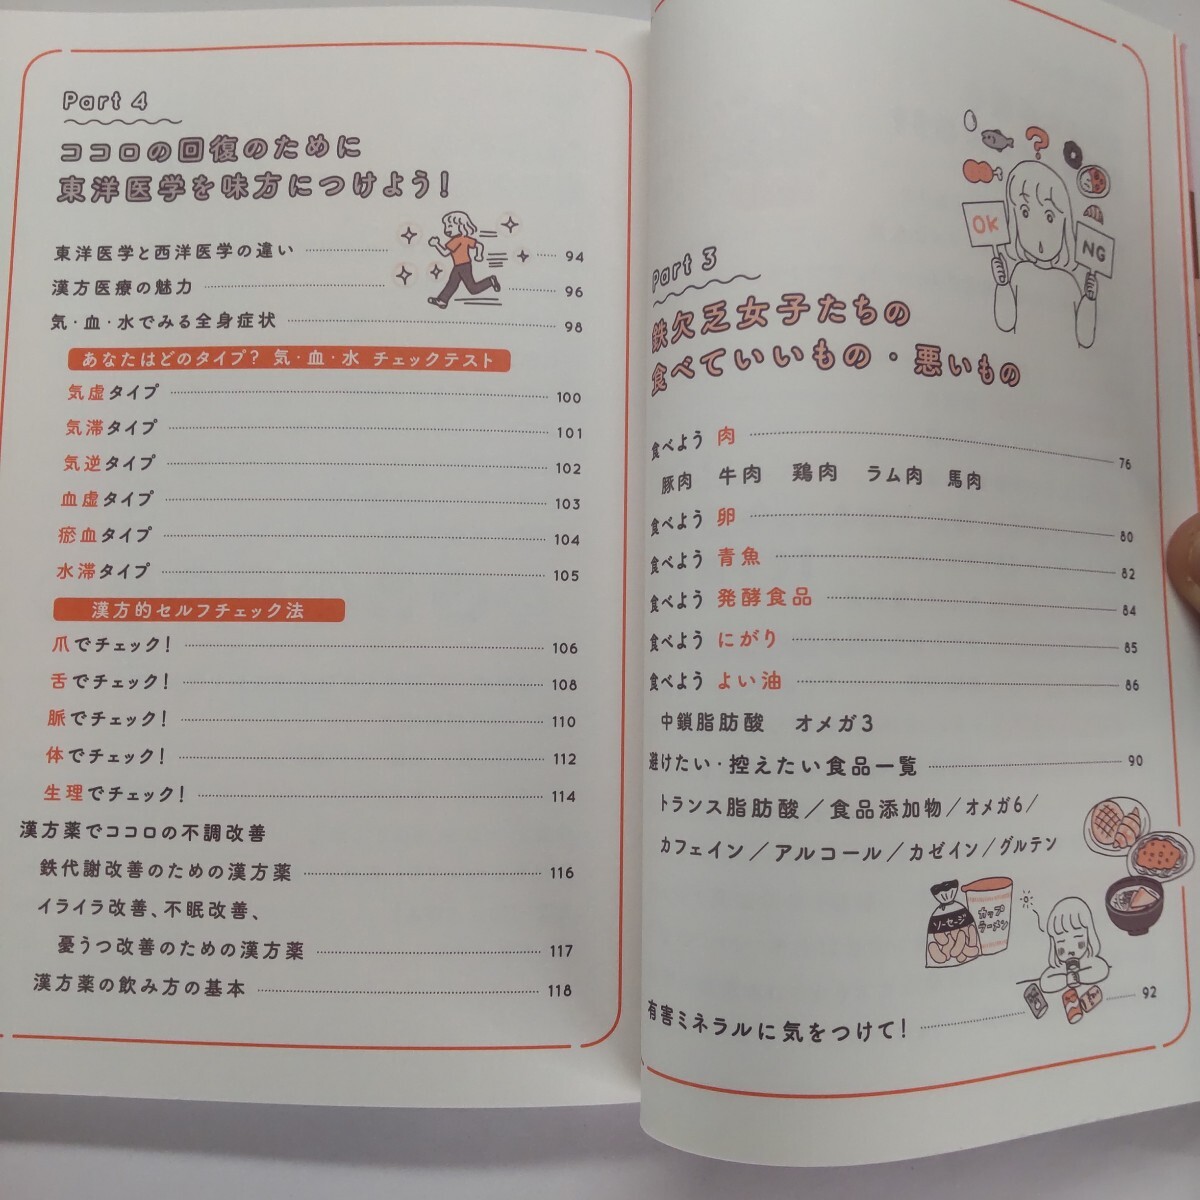 Part 4
ココロの回復のために
東洋医学を味方につけよう!
東洋医学と西洋医学の違い 94
漢方医療の魅力 96
気・血・水でみる全身症状 98
あなたはどのタイプ? 気・血・水 チェックテスト
気虚タイプ 100
気滞タイプ 101
気逆タイプ 102
血虚タイプ 103
瘀血タイプ 104
水滞タイプ 105
漢方的セルフチェック法
爪でチェック! 106
舌でチェック! 108
脈でチェック! 110
体でチェック! 112
生理でチェック! 114
漢方薬でココロの不調改善
鉄代謝改善のための漢方薬 116
イライラ改善、不眠改善、
憂うつ改善のための漢方薬 117
漢方薬の飲み方の基本 118
?
OK
NG
Part 3
鉄欠乏女子たちの
食べていいもの・悪いもの
食べよう 肉 76
豚肉 牛肉 鶏肉 ラム肉 馬肉
食べよう 卵 80
食べよう 青魚 82
食べよう 発酵食品 84
食べよう にがり 85
食べよう よい油 86
中鎖脂肪酸 オメガ3
避けたい・控えたい食品一覧 90
トランス脂肪酸/食品添加物/オメガ6/
カフェイン/アルコール/カゼイン/グルテン
ソーセージ
カップ
ラーメン
有害ミネラルに気をつけて! 92